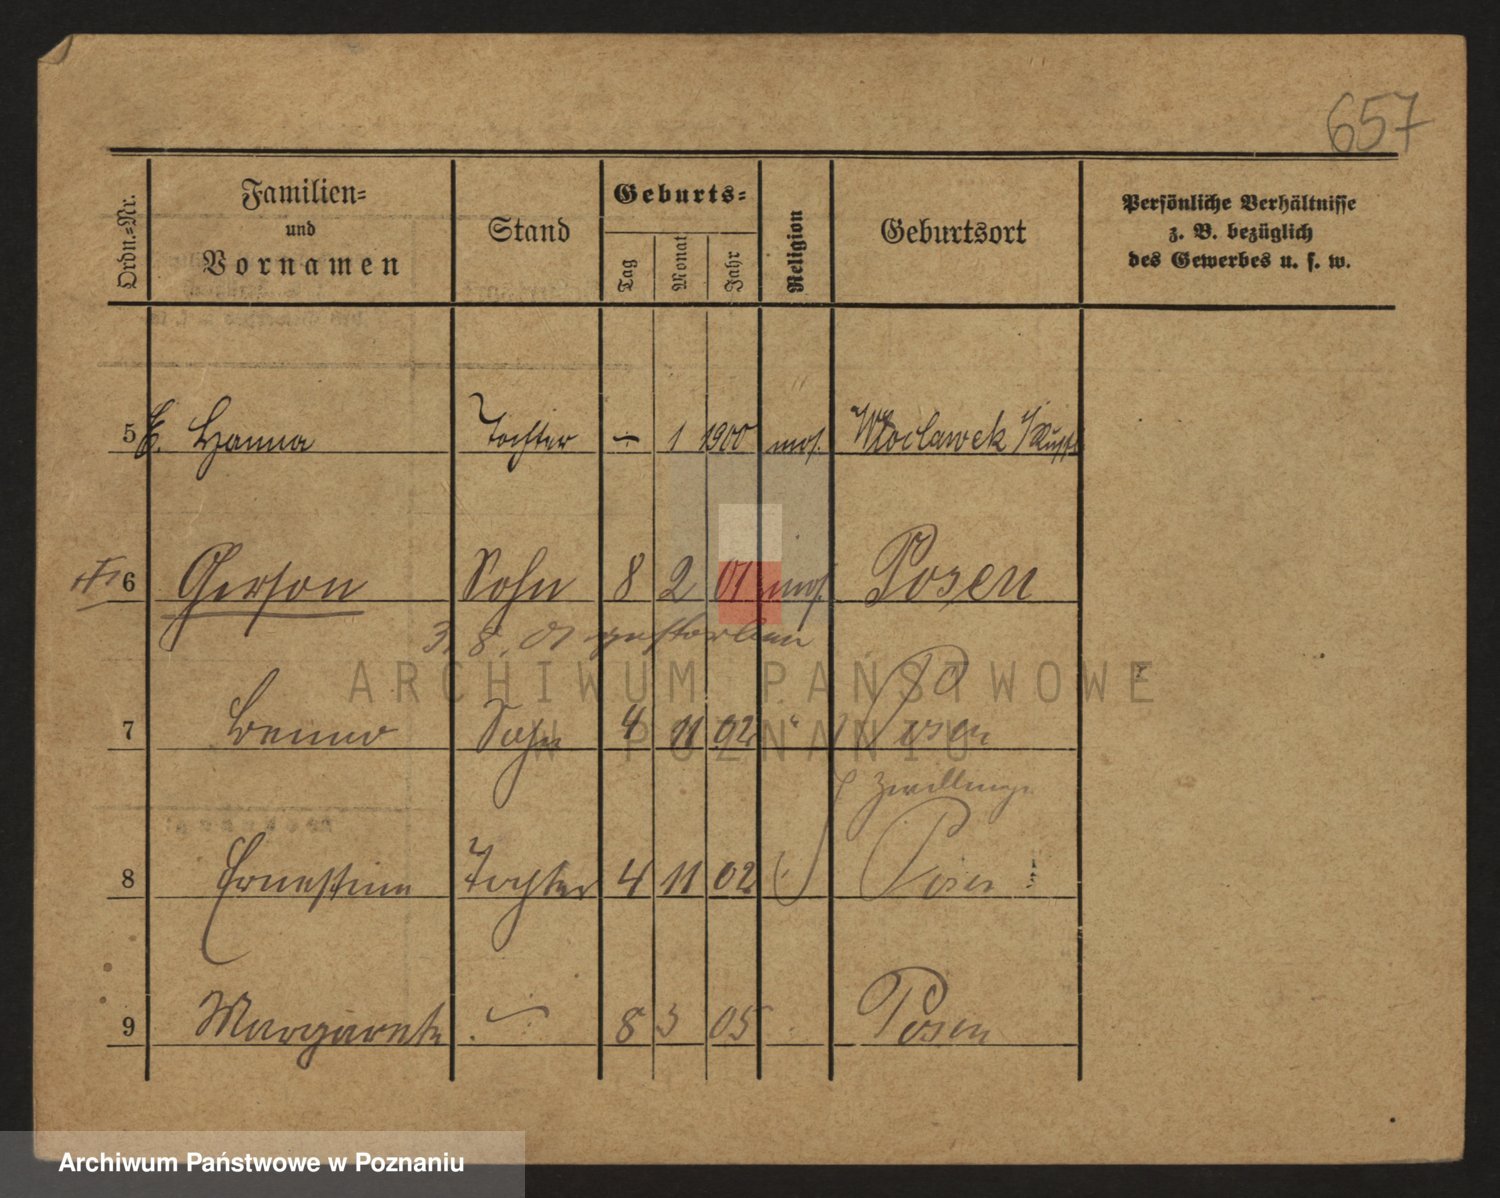 657
Ordn.=Nr.
Familien=
und
Vornamen
Stand
Geburts=
Tag
Monat
Jahr
Religion
Geburtsort
Persönliche Verhältnisse
z. B. bezüglich
des Gewerbes u. s. w.
5 Hanna Tochter – 1 1900 mos. Włocławek
6 Gerson Sohn 8 2 01 mos. Posen
3. 8. 01 gestorben
7 Benno Sohn 4 11 02 " Posen
Zwillinge
8 Ernestine Tochter 4 11 02 Posen
9 Margarete 8 3 05 Posen
ARCHIWUM PAŃSTWOWE
W POZNANIU
Archiwum Państwowe w Poznaniu